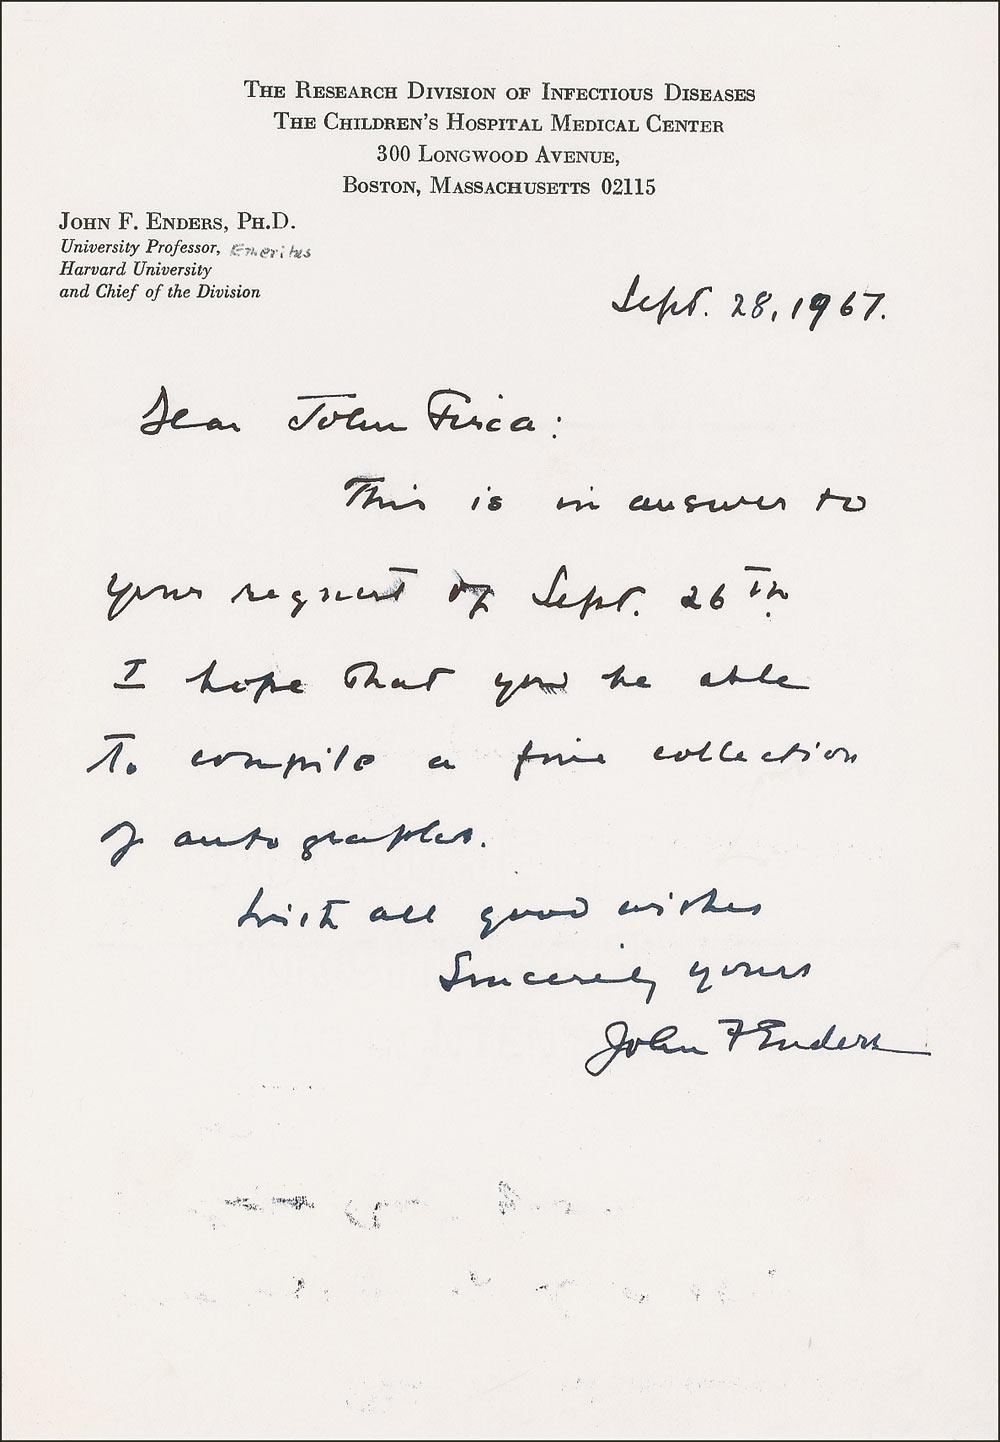 The Research Division of Infectious Diseases
The Children's Hospital Medical Center
300 Longwood Avenue,
Boston, Massachusetts 02115
John F. Enders, Ph.D.
University Professor, Emeritus
Harvard University
and Chief of the Division
Sept. 28, 1967.
Dear John :
This is in answer to
your request of Sept. 26th.
I hope that you be able
To compile a fine collection
of autographs.
With all good wishes
Sincerely yours
John F Enders